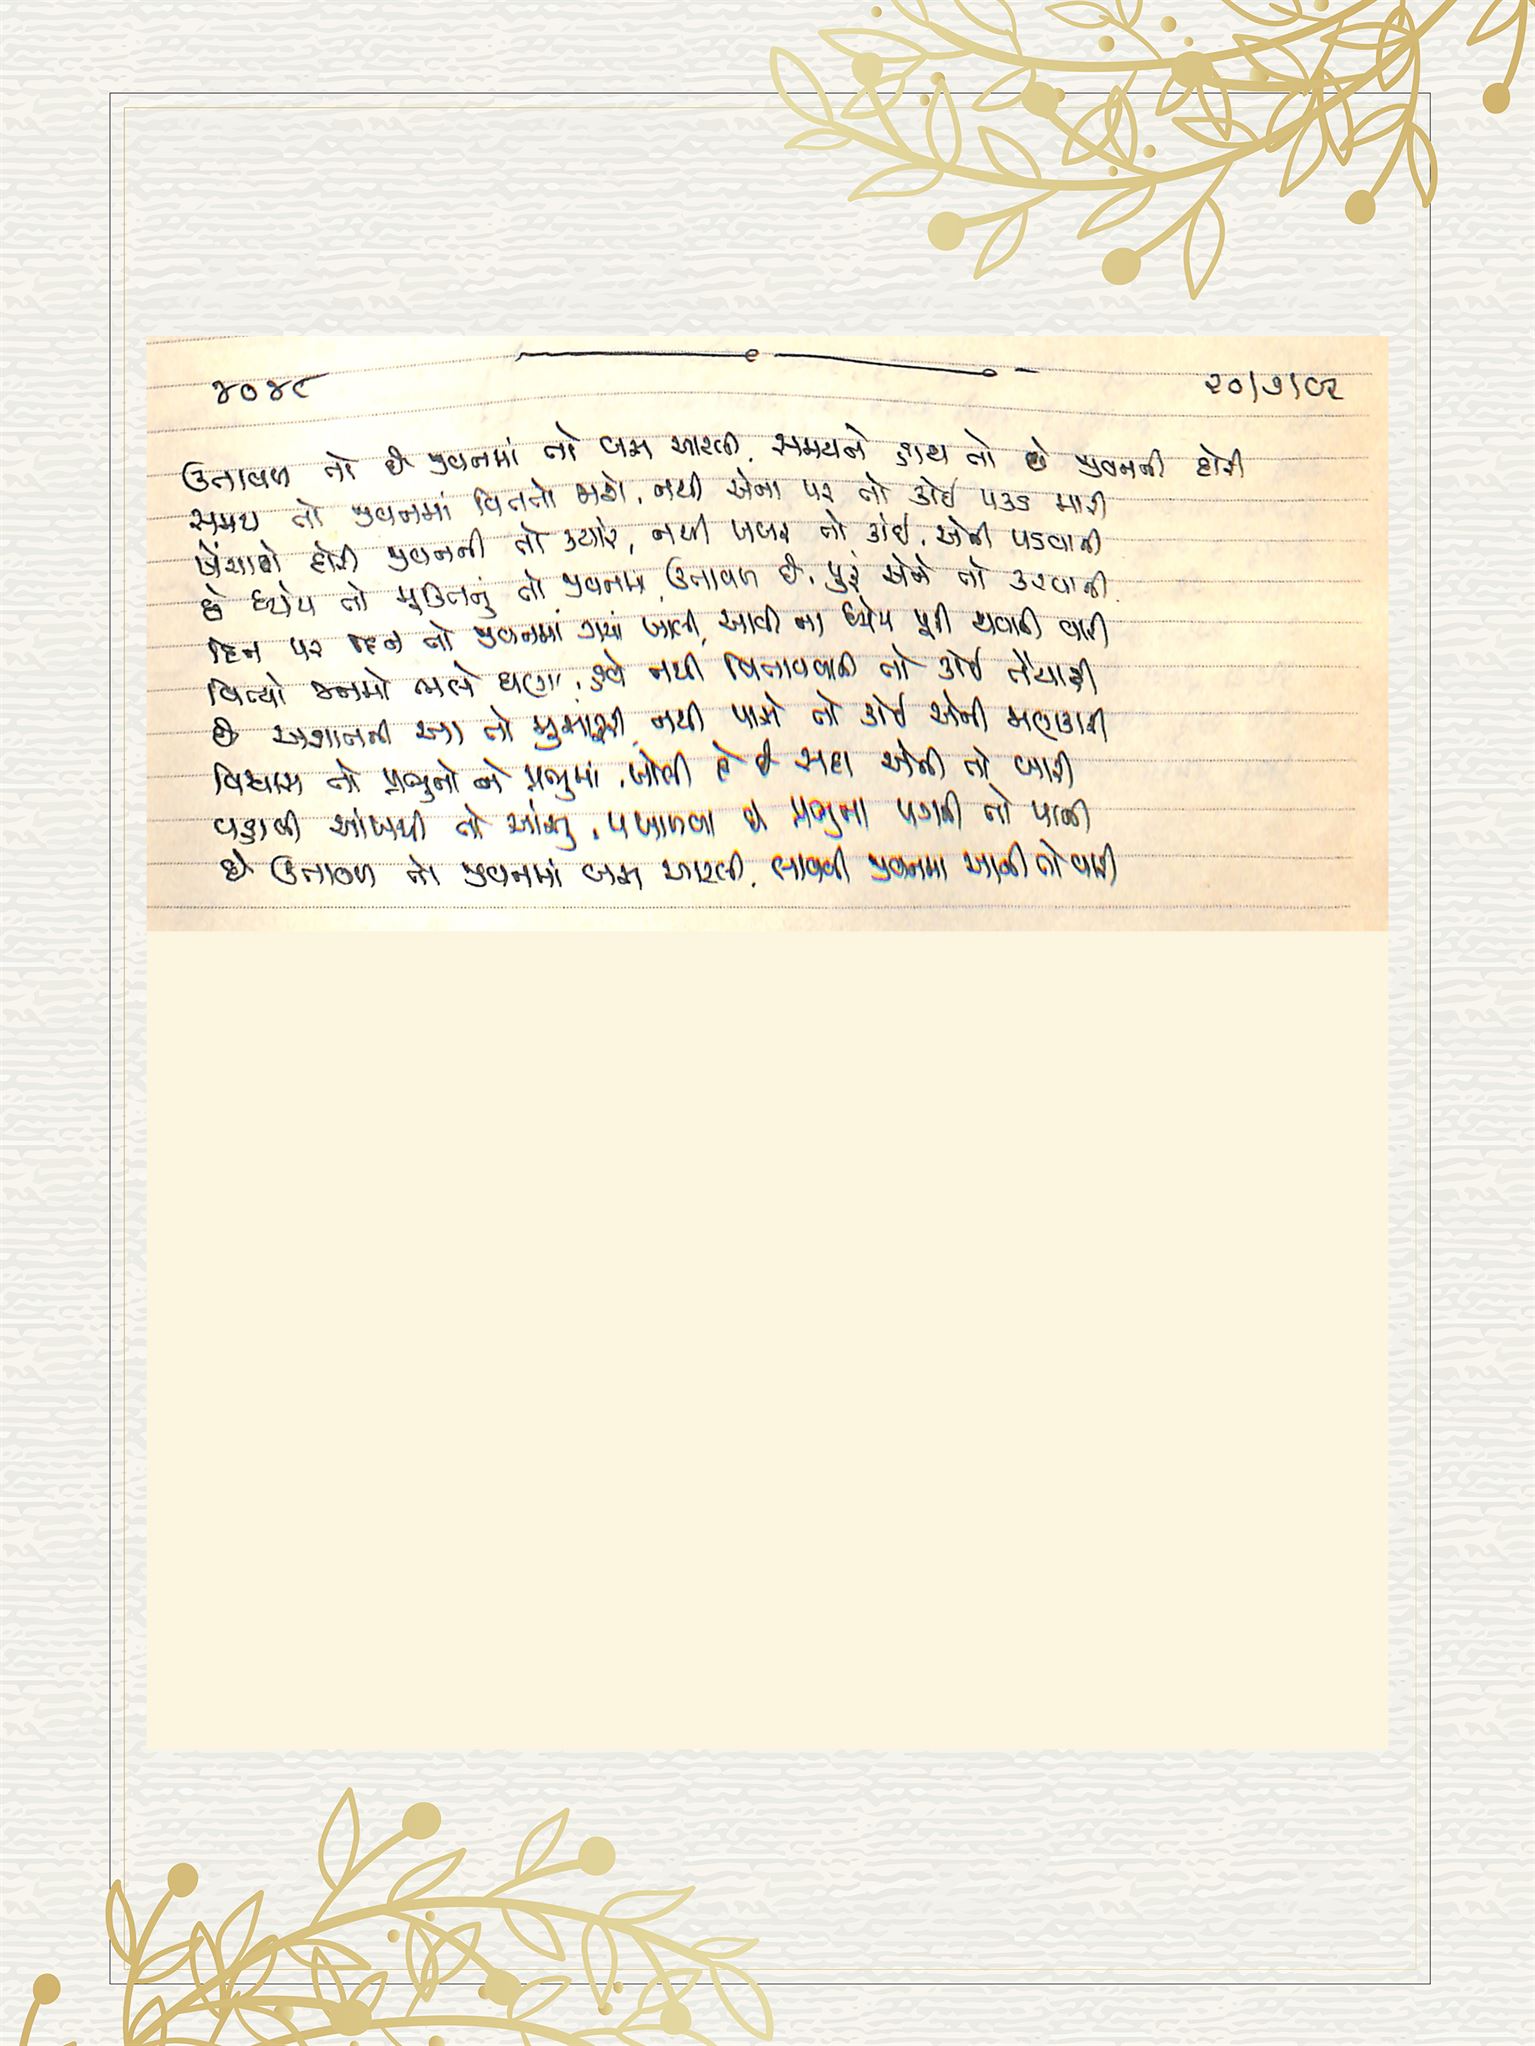 ૪૦૪૯ ૨૦/૭/૯૨
ઉતાવળ તો છે જીવનમાં તો બસ આટલી, સમયને હાથ તો છે જીવનની દોરી
સમય તો જીવનમાં વિતતો જાશે, નથી એના પર તો કોઈ પકડ મારી
ખેંચાશે દોરી જીવનની તો ક્યારે, નથી ખબર તો કાંઈ, એની પડવાની
છે ધ્યેય તો મુક્તિનું તો જીવનમાં, ઉતાવળ છે, પુરું એને તો કરવાની
દિન પર દિન તો જીવનમાં ગયાં ખાલી, આવી ના ધ્યેય પૂરી થવાની વારી
વિત્યો જનમો ભલે ઘણા, હવે નથી વિતાવવાની તો કોઈ તૈયારી
છે અજ્ઞાનની આ તો મુસાફરી, નથી પાસે તો કોઈ એની જાણકારી
વિશ્વાસ તો પ્રભુનો ને પ્રભુમાં, ખોલી દે છે સદા એની તો બારી
વહાવી આંખથી તો આંસુ, પખાળવા છે પ્રભુના પગની તો પાની
છે ઉતાવળ તો જીવનમાં બસ આટલી, લાવવી જીવનમાં આની તો વારી